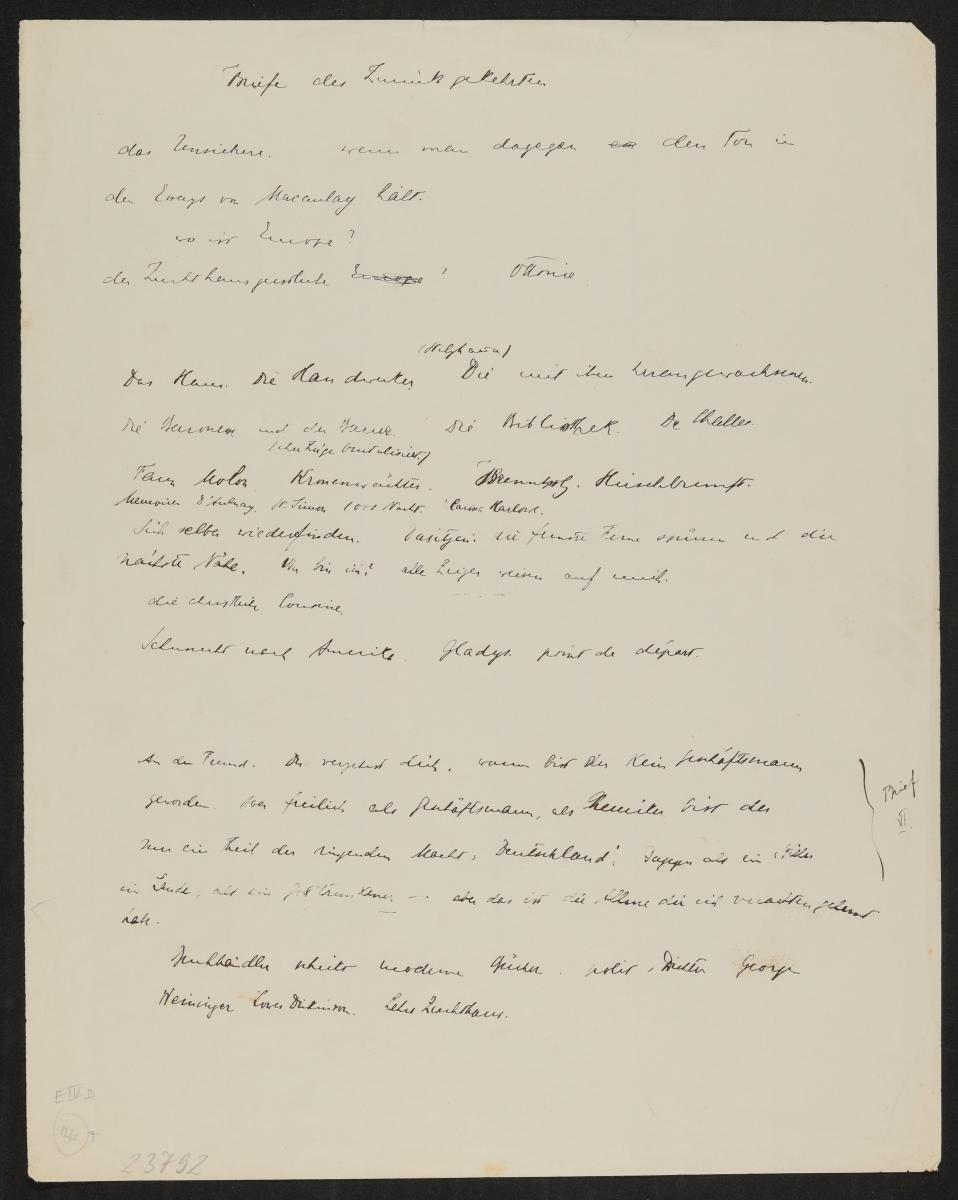 Briefe des Zurückgekehrten
das Unsichere. wenn man dagegen den Ton in
den Essays von Macaulay hält.
wo ist Europa?
der Zuchthausgeistliche Europa ! Ottonie
Das Haus. Die Handwerker Die mit ihm heraufgewachsenen.
die Baronesse und der Die Bibliothek. De Challes
Fanny Kronenwächter. Brennholz. Hirschbrunft.
Memoiren d'Aulnoy. St. Simon 1001 Nacht
Sich selber wiederfinden. Dasitzen. die fernste Ferne spüren und die
nächste Nähe. Wer bin ich? alle Zeiger weisen auf mich.
die christliche Cousine.
Sehnsucht nach Amerika. Gladys. point de départ.
An den Freund. Du verzehrst dich. warum bist du kein Geschäftsmann
geworden. freilich als Geschäftsmann, als Chemiker bist du
nur ein Theil der ringenden Macht „Deutschland". Dagegen als ein
im Lande, als ein Gott trunkener — aber das ist die die ich verachten gelernt
habe.
Buchhändler schickt moderne Bücher. polit. Dichter George
Weininger Lowes Dickinson. Zuchthaus.
Brief
VI.
E IV B
36
23792